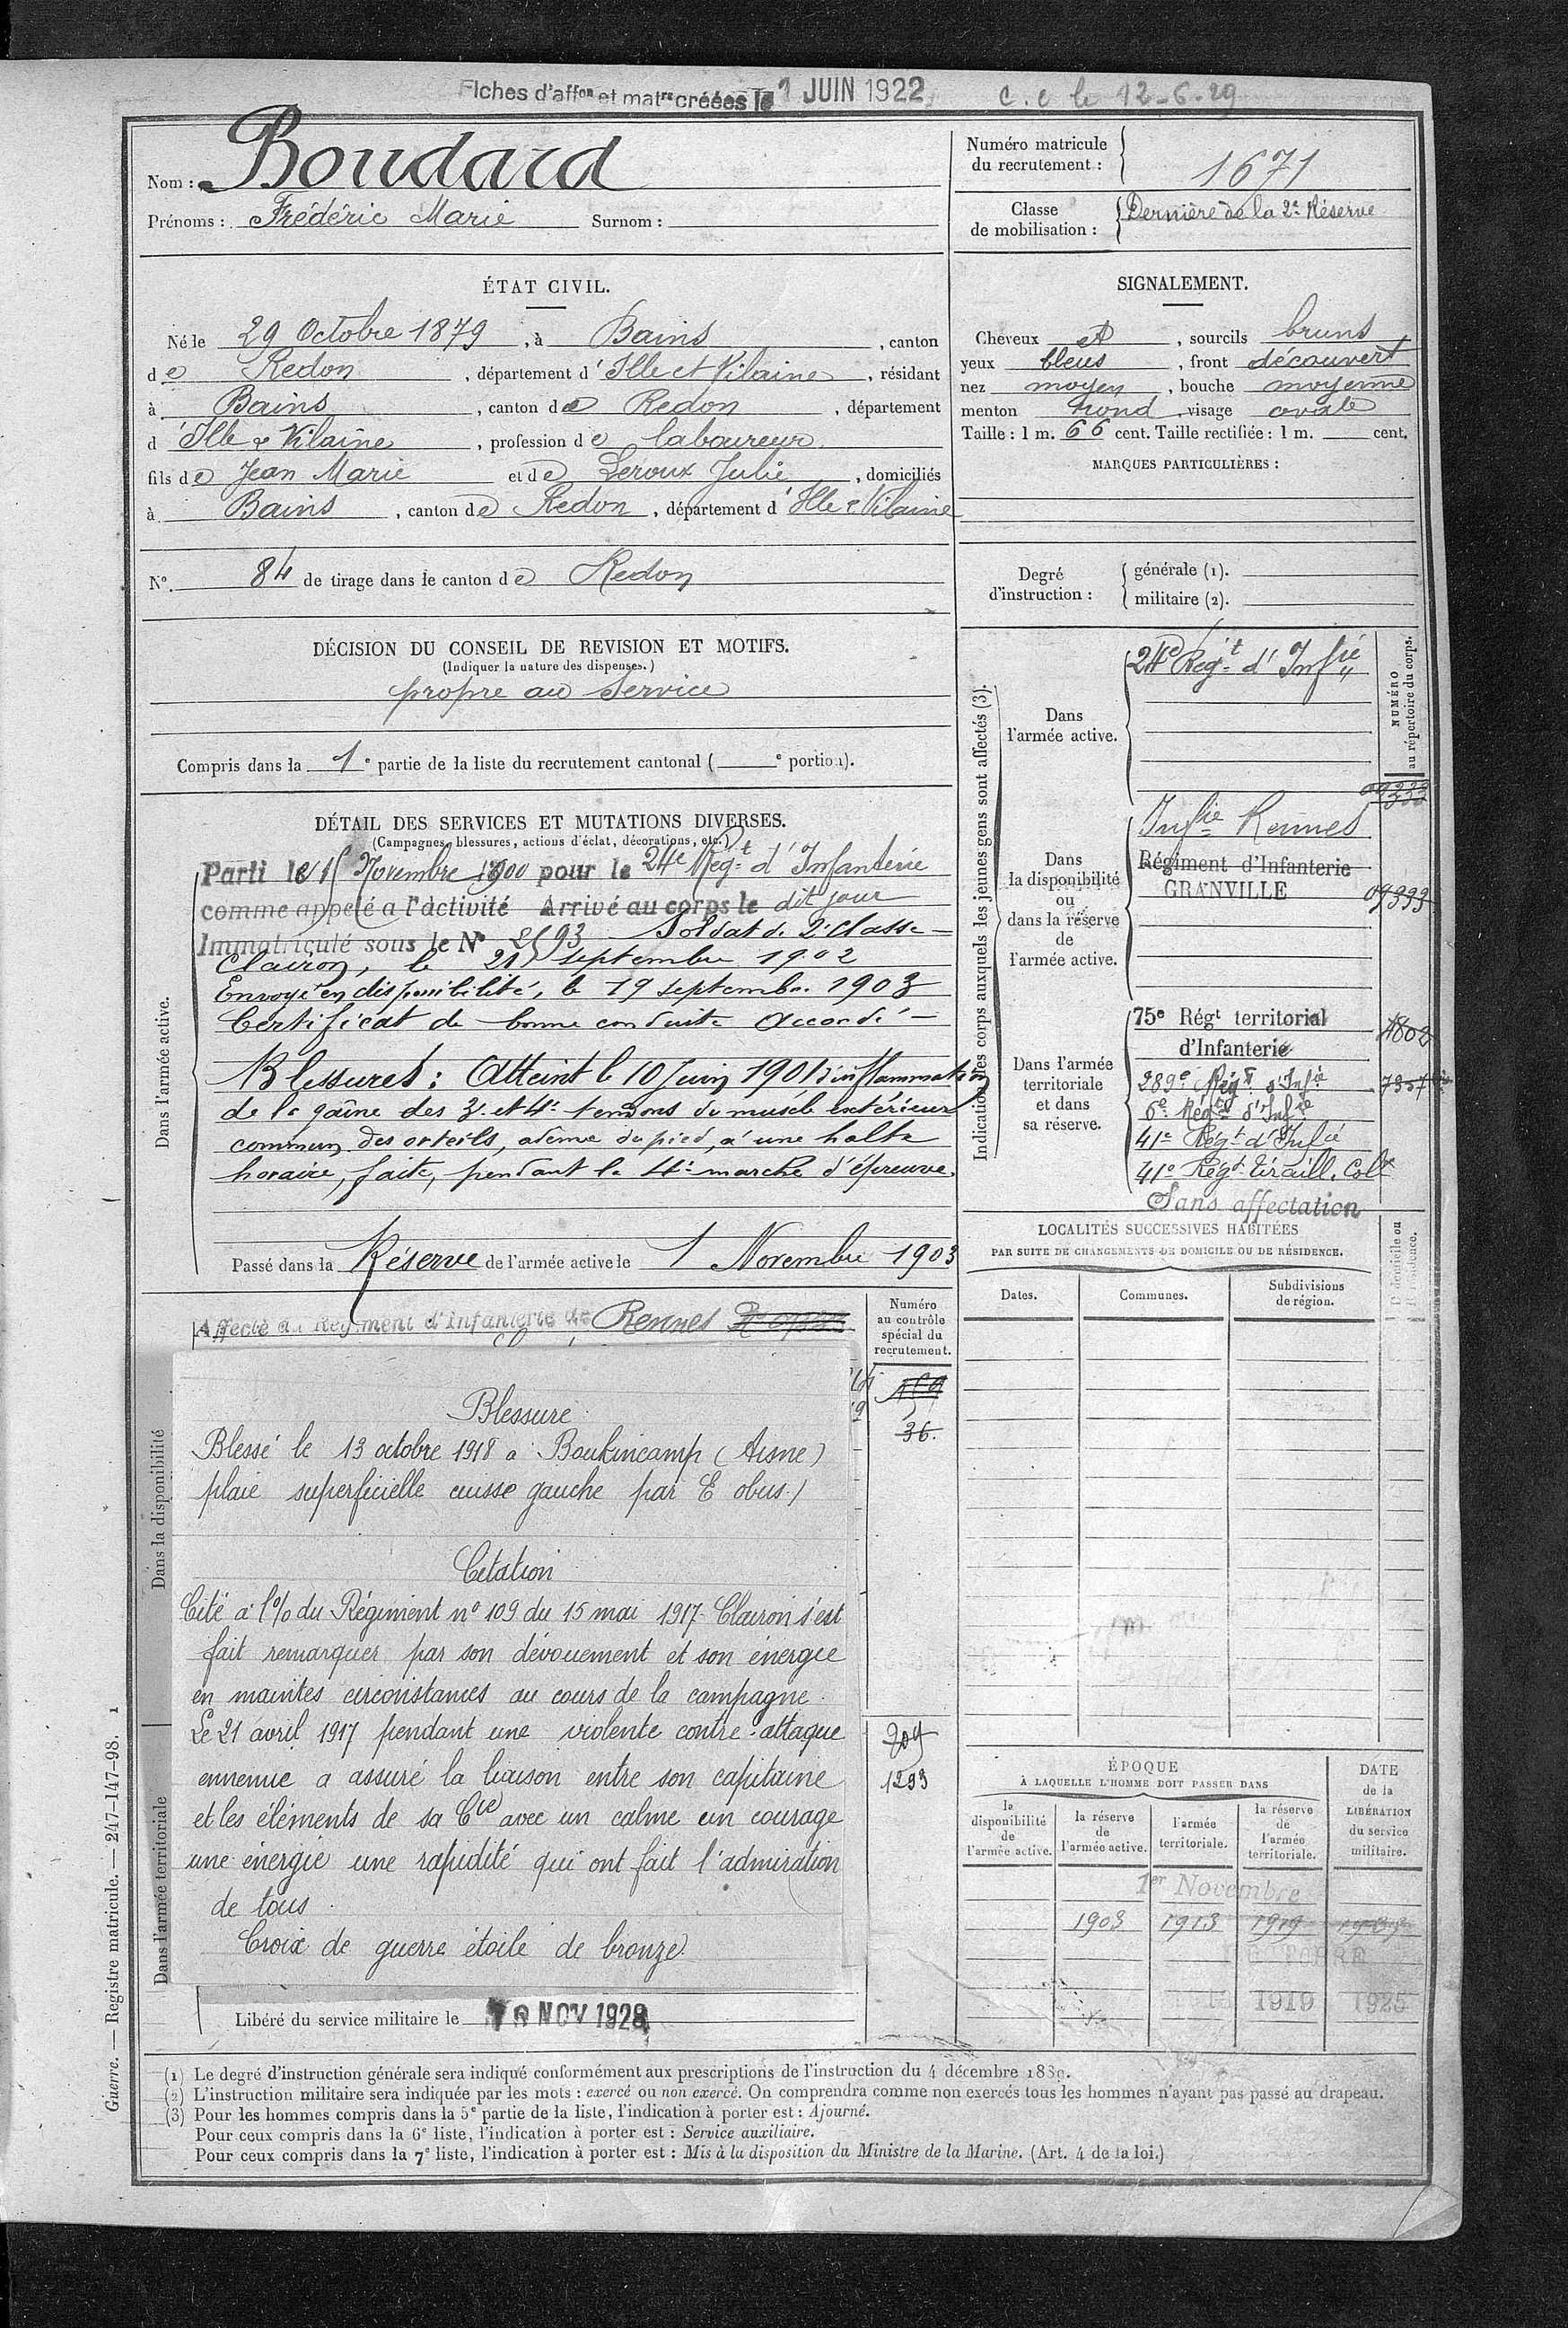 Fiches d'affon et matre créées le 1 JUIN 1922
c. c le 12-6-29
Nom : Boudard
Prénoms : Frédéric Marie Surnom :
Numéro matricule du recrutement : 1671
Classe de mobilisation : Dernière de la 2e Réserve
ÉTAT CIVIL.
Né le 29 Octobre 1879, à Bains, canton
de Redon, département d'Ille et Vilaine, résidant
à Bains, canton de Redon, département
d'Ille & Vilaine, profession de laboureur
fils de Jean Marie et de Leroux Julie, domiciliés
à Bains, canton de Redon, département d'Ille & Vilaine
No. 84 de tirage dans le canton de Redon
DÉCISION DU CONSEIL DE REVISION ET MOTIFS.
(Indiquer la nature des dispenses.)
propre au Service
Compris dans la 1e partie de la liste du recrutement cantonal ( e portion).
DÉTAIL DES SERVICES ET MUTATIONS DIVERSES.
(Campagnes, blessures, actions d'éclat, décorations, etc.)
Dans l'armée active.
Parti le 15 Novembre 1900 pour le 24e Régt d'Infanterie
comme appelé à l'activité Arrivé au corps le dit jour
Immatriculé sous le No 2593 Soldat de 2e classe
Clairon, le 21 septembre 1902
Envoyé en disponibilité, le 19 septembre 1903
Certificat de bonne conduite Accordé
Blessures : Atteint le 10 Juin 1901 d'inflammation
de la gaîne des 3e et 4e tendons du muscle extérieur
commun des orteils, œdème du pied, à une halte
horaire, faite, pendant la 4e marche d'épreuve.
Passé dans la Réserve de l'armée active le 1 Novembre 1903
Affecté au Régiment d'Infanterie de Rennes
Numéro au contrôle spécial du recrutement.
36.
709
1293
Dans la disponibilité
Dans l'armée territoriale
Blessure
Blessé le 13 octobre 1918 a Boukincamp (Aisne)
plaie superficielle cuisse gauche par E obus /
Citation
Cité a l'% du Régiment no 109 du 15 mai 1917. Clairon s'est
fait remarquer par son dévouement et son énergie
en maintes circonstances au cours de la campagne.
Le 21 avril 1917 pendant une violente contre-attaque
ennemie a assuré la liaison entre son capitaine
et les éléments de sa Cie avec un calme un courage
une énergie une rapidité qui ont fait l'admiration
de tous.
Croix de guerre étoile de bronze
Libéré du service militaire le 10 NOV 1928
SIGNALEMENT.
Cheveux et, sourcils bruns
yeux bleus, front découvert
nez moyen, bouche moyenne
menton rond, visage ovale
Taille : 1 m. 66 cent. Taille rectifiée : 1 m. cent.
MARQUES PARTICULIÈRES :
Degré d'instruction : générale (1).
militaire (2).
Indication des corps auxquels les jeunes gens sont affectés (3).
NUMÉRO au répertoire du corps.
Dans l'armée active.
24e Régt d'Infie
Dans la disponibilité ou dans la réserve de l'armée active.
09333
Infie Rennes
Régiment d'Infanterie
GRANVILLE 09333
Dans l'armée territoriale et dans sa réserve.
75e Régt territorial
d'Infanterie 4802
289e Régt d'Infie
6e Régt d'Infie
41e Régt d'Infie
41e Régt Tiraill. Colx
Sans affectation
LOCALITÉS SUCCESSIVES HABITÉES
PAR SUITE DE CHANGEMENTS DE DOMICILE OU DE RÉSIDENCE.
Dates. Communes. Subdivisions de région.
D. domicile ou R. résidence.
ÉPOQUE
À LAQUELLE L'HOMME DOIT PASSER DANS
la disponibilité de l'armée active.
la réserve de l'armée active.
l'armée territoriale.
la réserve de l'armée territoriale.
DATE de la LIBÉRATION du service militaire.
1er Novembre
1903 1913 1919
OCTOBRE
1919 1925
Guerre. — Registre matricule. — 247-147-98. 1
(1) Le degré d'instruction générale sera indiqué conformément aux prescriptions de l'instruction du 4 décembre 1889.
(2) L'instruction militaire sera indiquée par les mots : exercé ou non exercé. On comprendra comme non exercés tous les hommes n'ayant pas passé au drapeau.
(3) Pour les hommes compris dans la 5e partie de la liste, l'indication à porter est : Ajourné.
Pour ceux compris dans la 6e liste, l'indication à porter est : Service auxiliaire.
Pour ceux compris dans la 7e liste, l'indication à porter est : Mis à la disposition du Ministre de la Marine. (Art. 4 de la loi.)